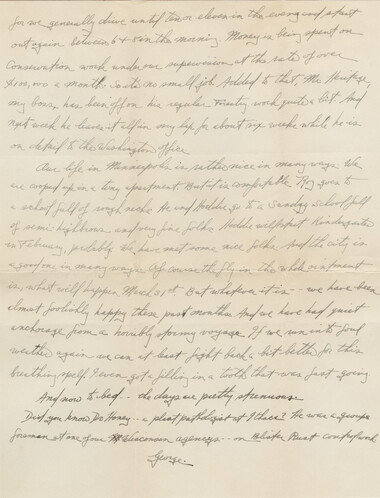 for we generally drive until ten or eleven in the evening and start
out again between 6 & 8 in the morning. Money is being spent on
Conservation work under our supervision at the rate of over
$100,000 a month. So its no small job. Added to that, Mr.
my boss, has been off on his regular Forestry work quite a bit. And
next week he leaves it all in my lap for about six weeks while he is
on detail to the Washington office.
Our life in Minneapolis is rather nice in many ways. We
are cooped up in a tiny apartment. But it is comfortable. goes to
a school full of rough necks. He and go to a Sunday school full
of semi highbrows and very fine folks. starts Kindergarten
in February, probably. We have met some nice folks. And the city is
a good one in many ways. Of course the fly in the whole ointment
is, what will happen March 31st. But whatever it is -- we have been
almost foolishly happy these past months. And we have had quiet
anchorage from a horribly stormy voyage. If we run into foul
weather again we can at least fight back a bit better for this
breathing spell. I even got a filling in a tooth that was just going
And now to bed -- the days are pretty strenuous.
Did you know Dr. Honey -- a plant pathologist at Ithaca? He was a group
foreman at one of our Wisconsin agencys -- on Blister Rust control work
George.